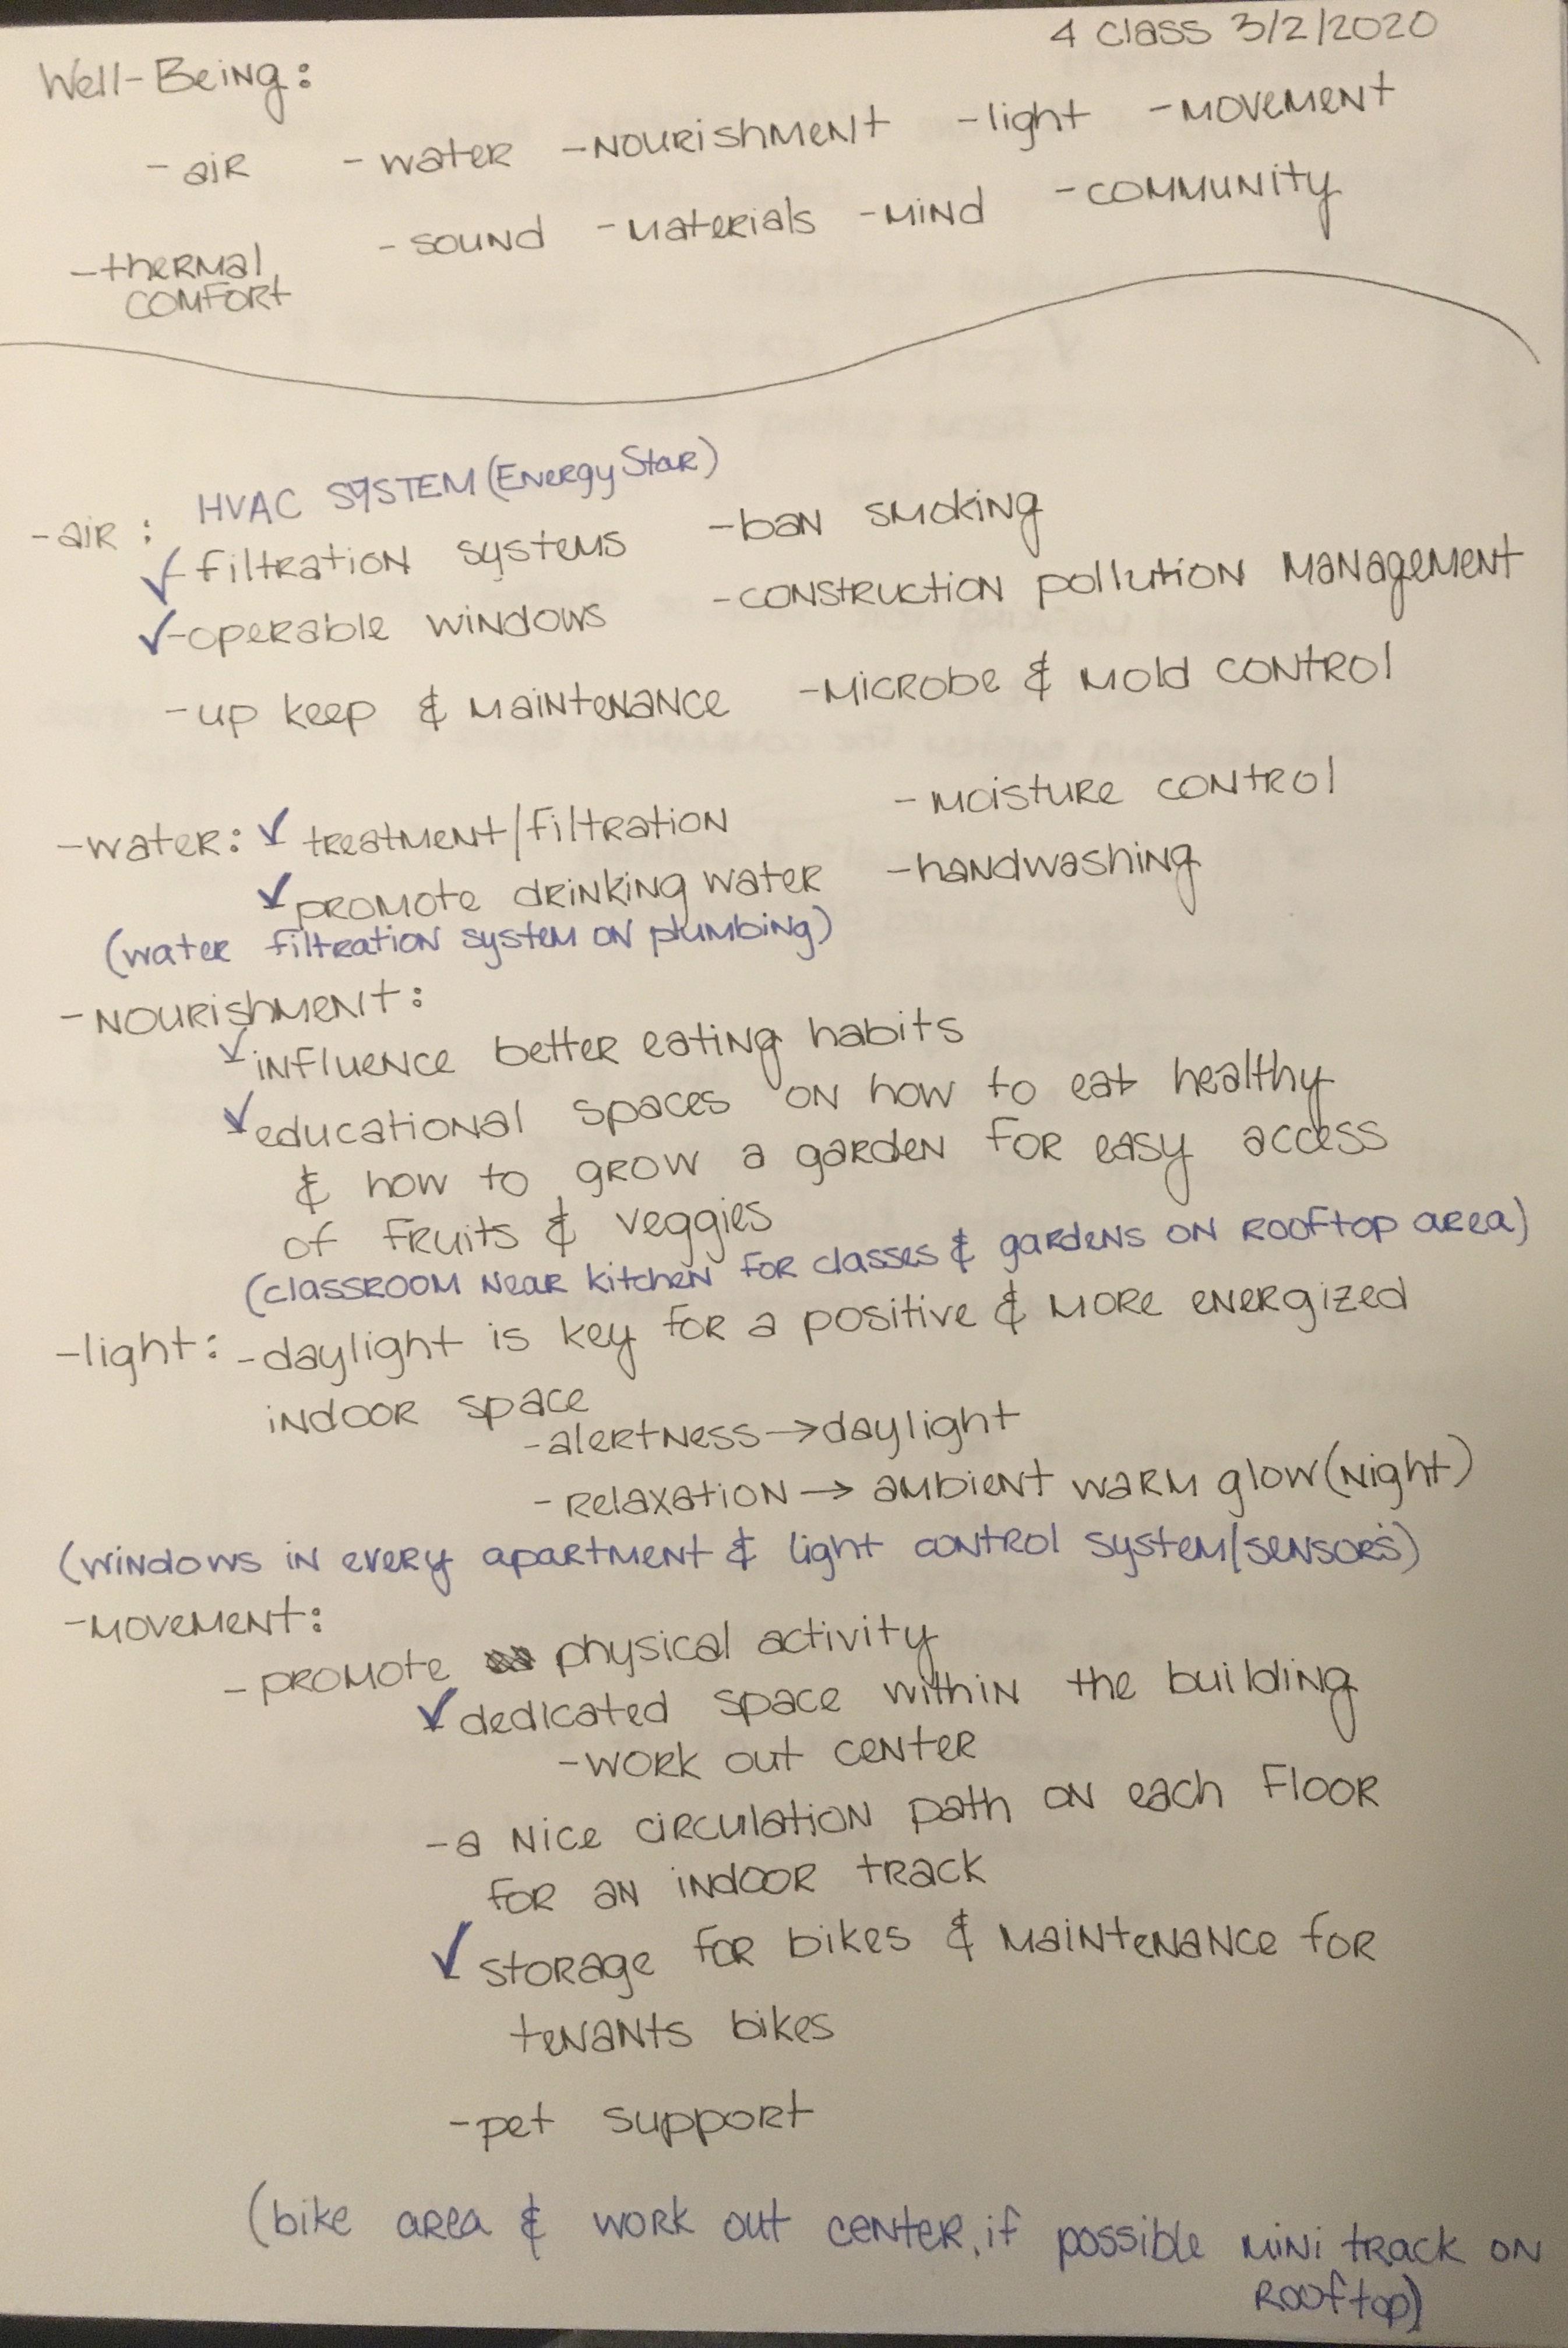 4 class 3/2/2020
Well-Being:
- air - water - nourishment - light - movement
- thermal comfort - sound - materials - mind - community
HVAC SYSTEM (Energy Star)
- air:
✓- filtration systems - ban smoking
✓- operable windows - construction pollution management
- up keep & maintenance - microbe & mold control
- moisture control
- water: ✓ treatment/filtration
✓ promote drinking water - handwashing
(water filtration system on plumbing)
- nourishment:
✓ influence better eating habits
✓ educational spaces on how to eat healthy
& how to grow a garden for easy access
of fruits & veggies
(classroom near kitchen for classes & gardens on rooftop area)
- light: - daylight is key for a positive & more energized
indoor space
- alertness → daylight
- relaxation → ambient warm glow (night)
(windows in every apartment & light control system/sensors)
- movement:
- promote physical activity
✓ dedicated space within the building
- work out center
- a nice circulation path on each floor
for an indoor track
✓ storage for bikes & maintenance for
tenants bikes
- pet support
(bike area & work out center, if possible mini track on
rooftop)